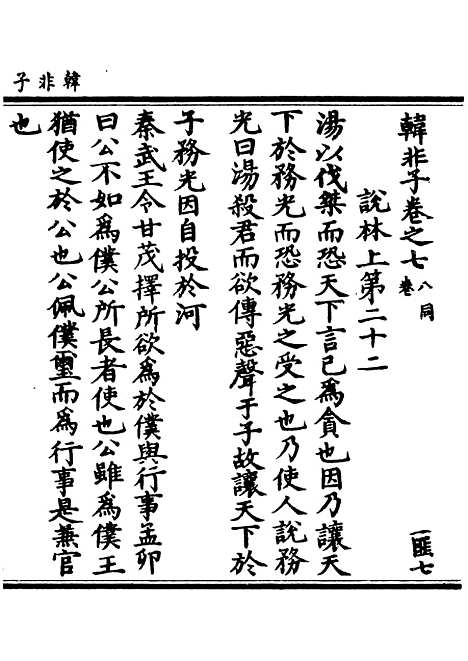 韓非子
韓非子卷之七 八卷同
一匪七
說林上第二十二
湯以伐桀而恐天下言已為貪也因乃讓天
下於務光而恐務光之受之也乃使人說務
光曰湯殺君而欲傳惡聲于子故讓天下於
子務光因自投於河
秦武王令甘茂擇所欲為於僕與行事孟卯
曰公不如為僕公所長者使也公雖為僕王
猶使之於公也公佩僕璽而為行事是兼官
也